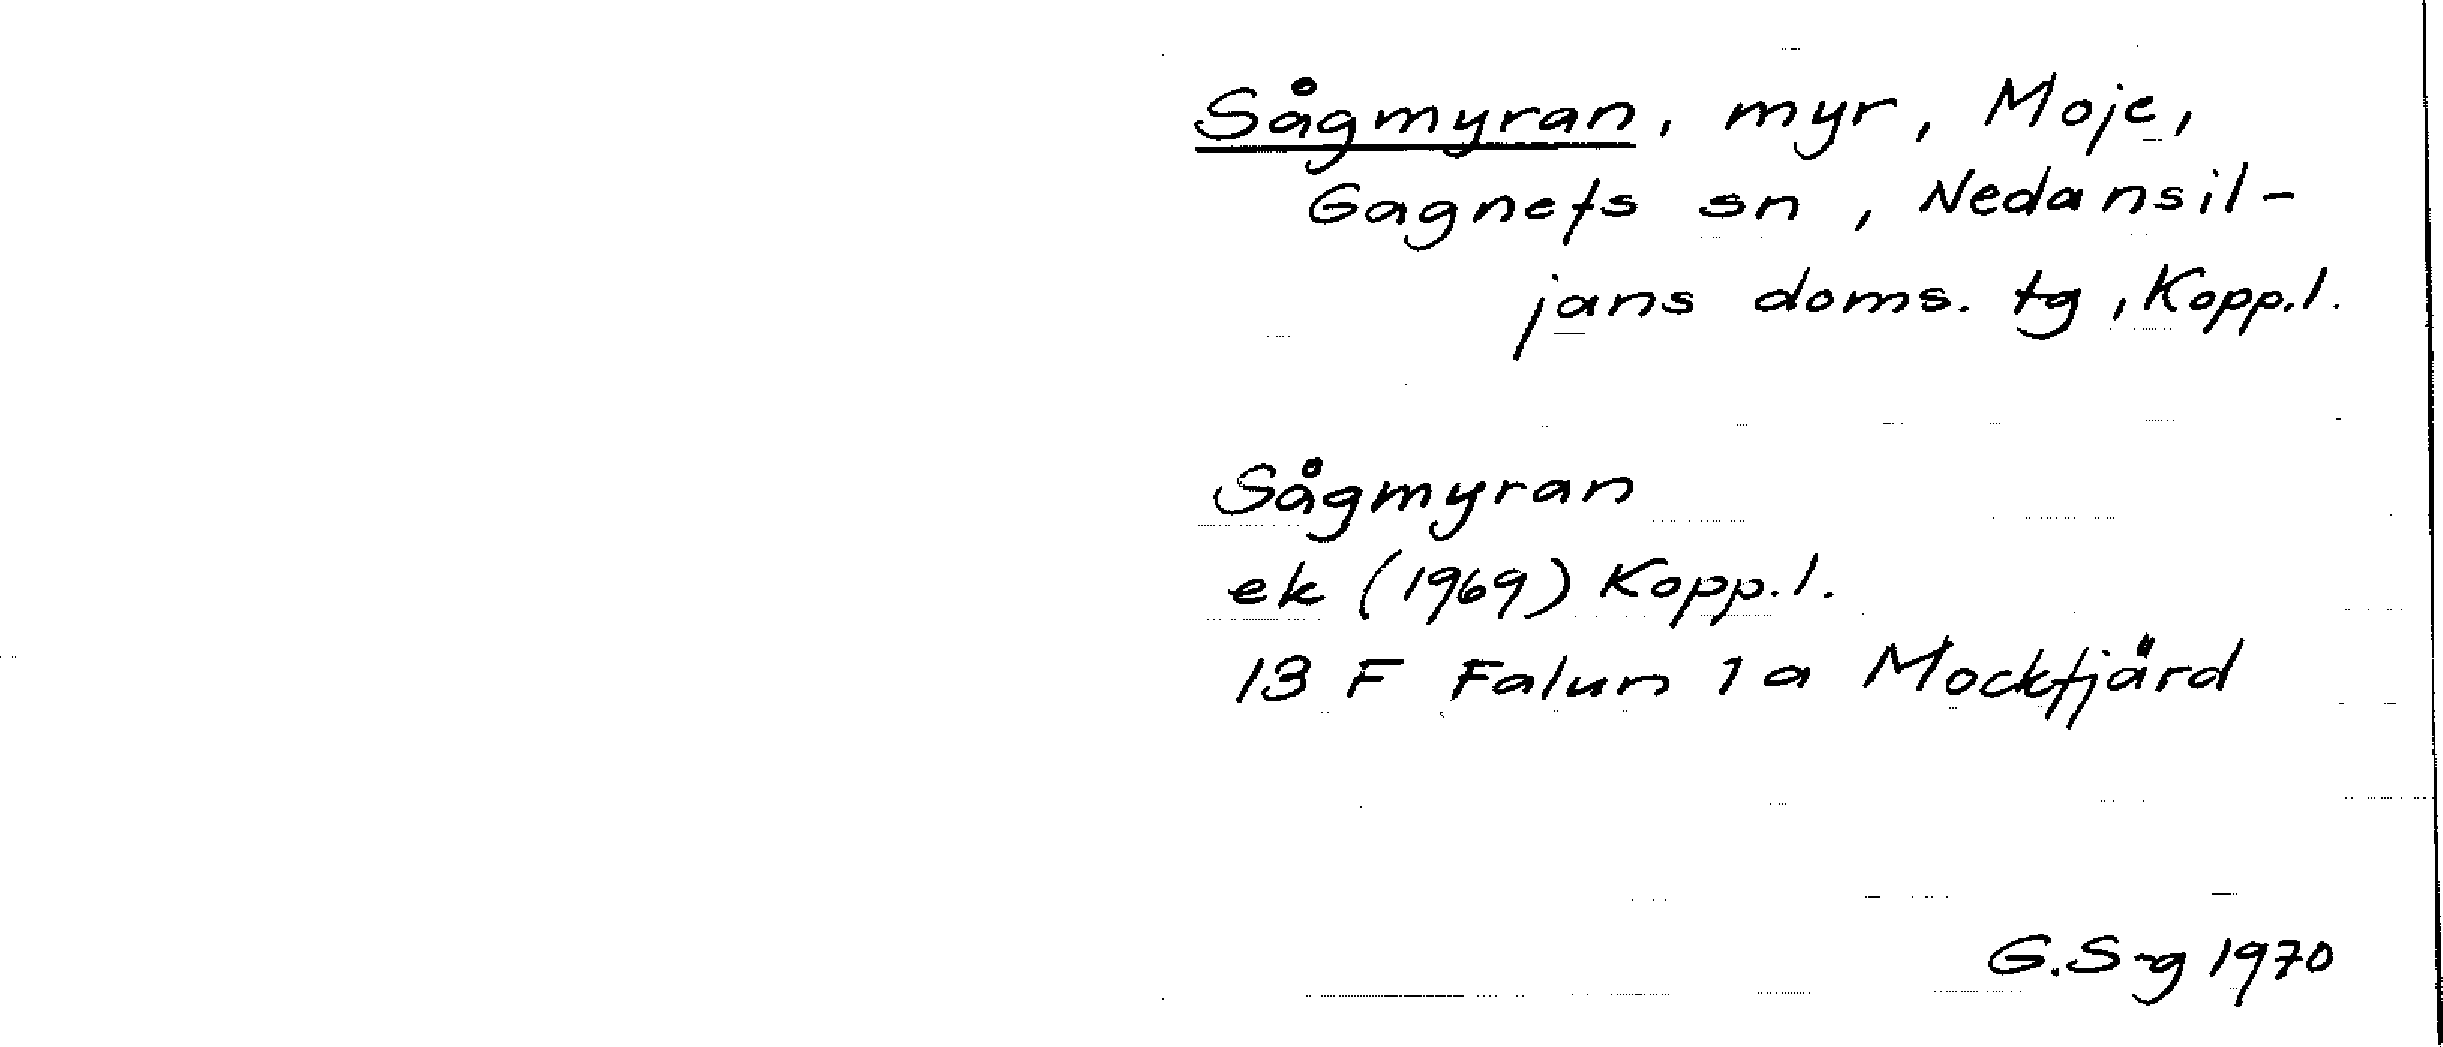 Sågmyran, myr, Moje,
Gagnefs sn, Nedansil-
jans doms. tg, Kopp.l.
Sågmyran
ek (1969) Kopp.l.
13 F Falun 1 a Mockfjärd
G.S-g 1970